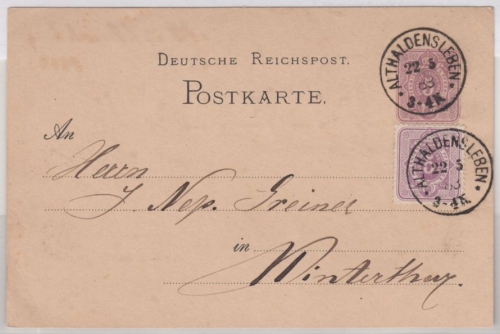 DEUTSCHE REICHSPOST.
POSTKARTE.
ALTHALDENSLEBEN
22 5
83
3-4N
An
Herrn
J. Nep. Greiner
in
Winterthur.
ALTHALDENSLEBEN
22 5
3-4N